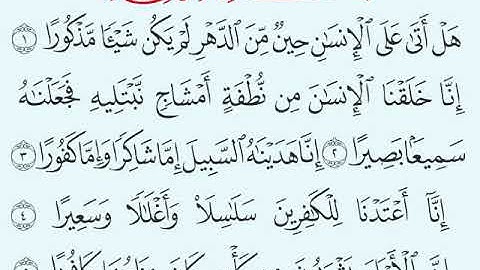 هَلۡ أَتَىٰ عَلَى ٱلۡإِنسَٰنِ حِينٞ مِّنَ ٱلدَّهۡرِ لَمۡ يَكُن شَيۡـٔٗا مَّذۡكُورًا ١
إِنَّا خَلَقۡنَا ٱلۡإِنسَٰنَ مِن نُّطۡفَةٍ أَمۡشَاجٖ نَّبۡتَلِيهِ فَجَعَلۡنَٰهُ
سَمِيعَۢا بَصِيرًا ٢ إِنَّا هَدَيۡنَٰهُ ٱلسَّبِيلَ إِمَّا شَاكِرٗا وَإِمَّا كَفُورًا ٣
إِنَّآ أَعۡتَدۡنَا لِلۡكَٰفِرِينَ سَلَٰسِلَاْ وَأَغۡلَٰلٗا وَسَعِيرًا ٤